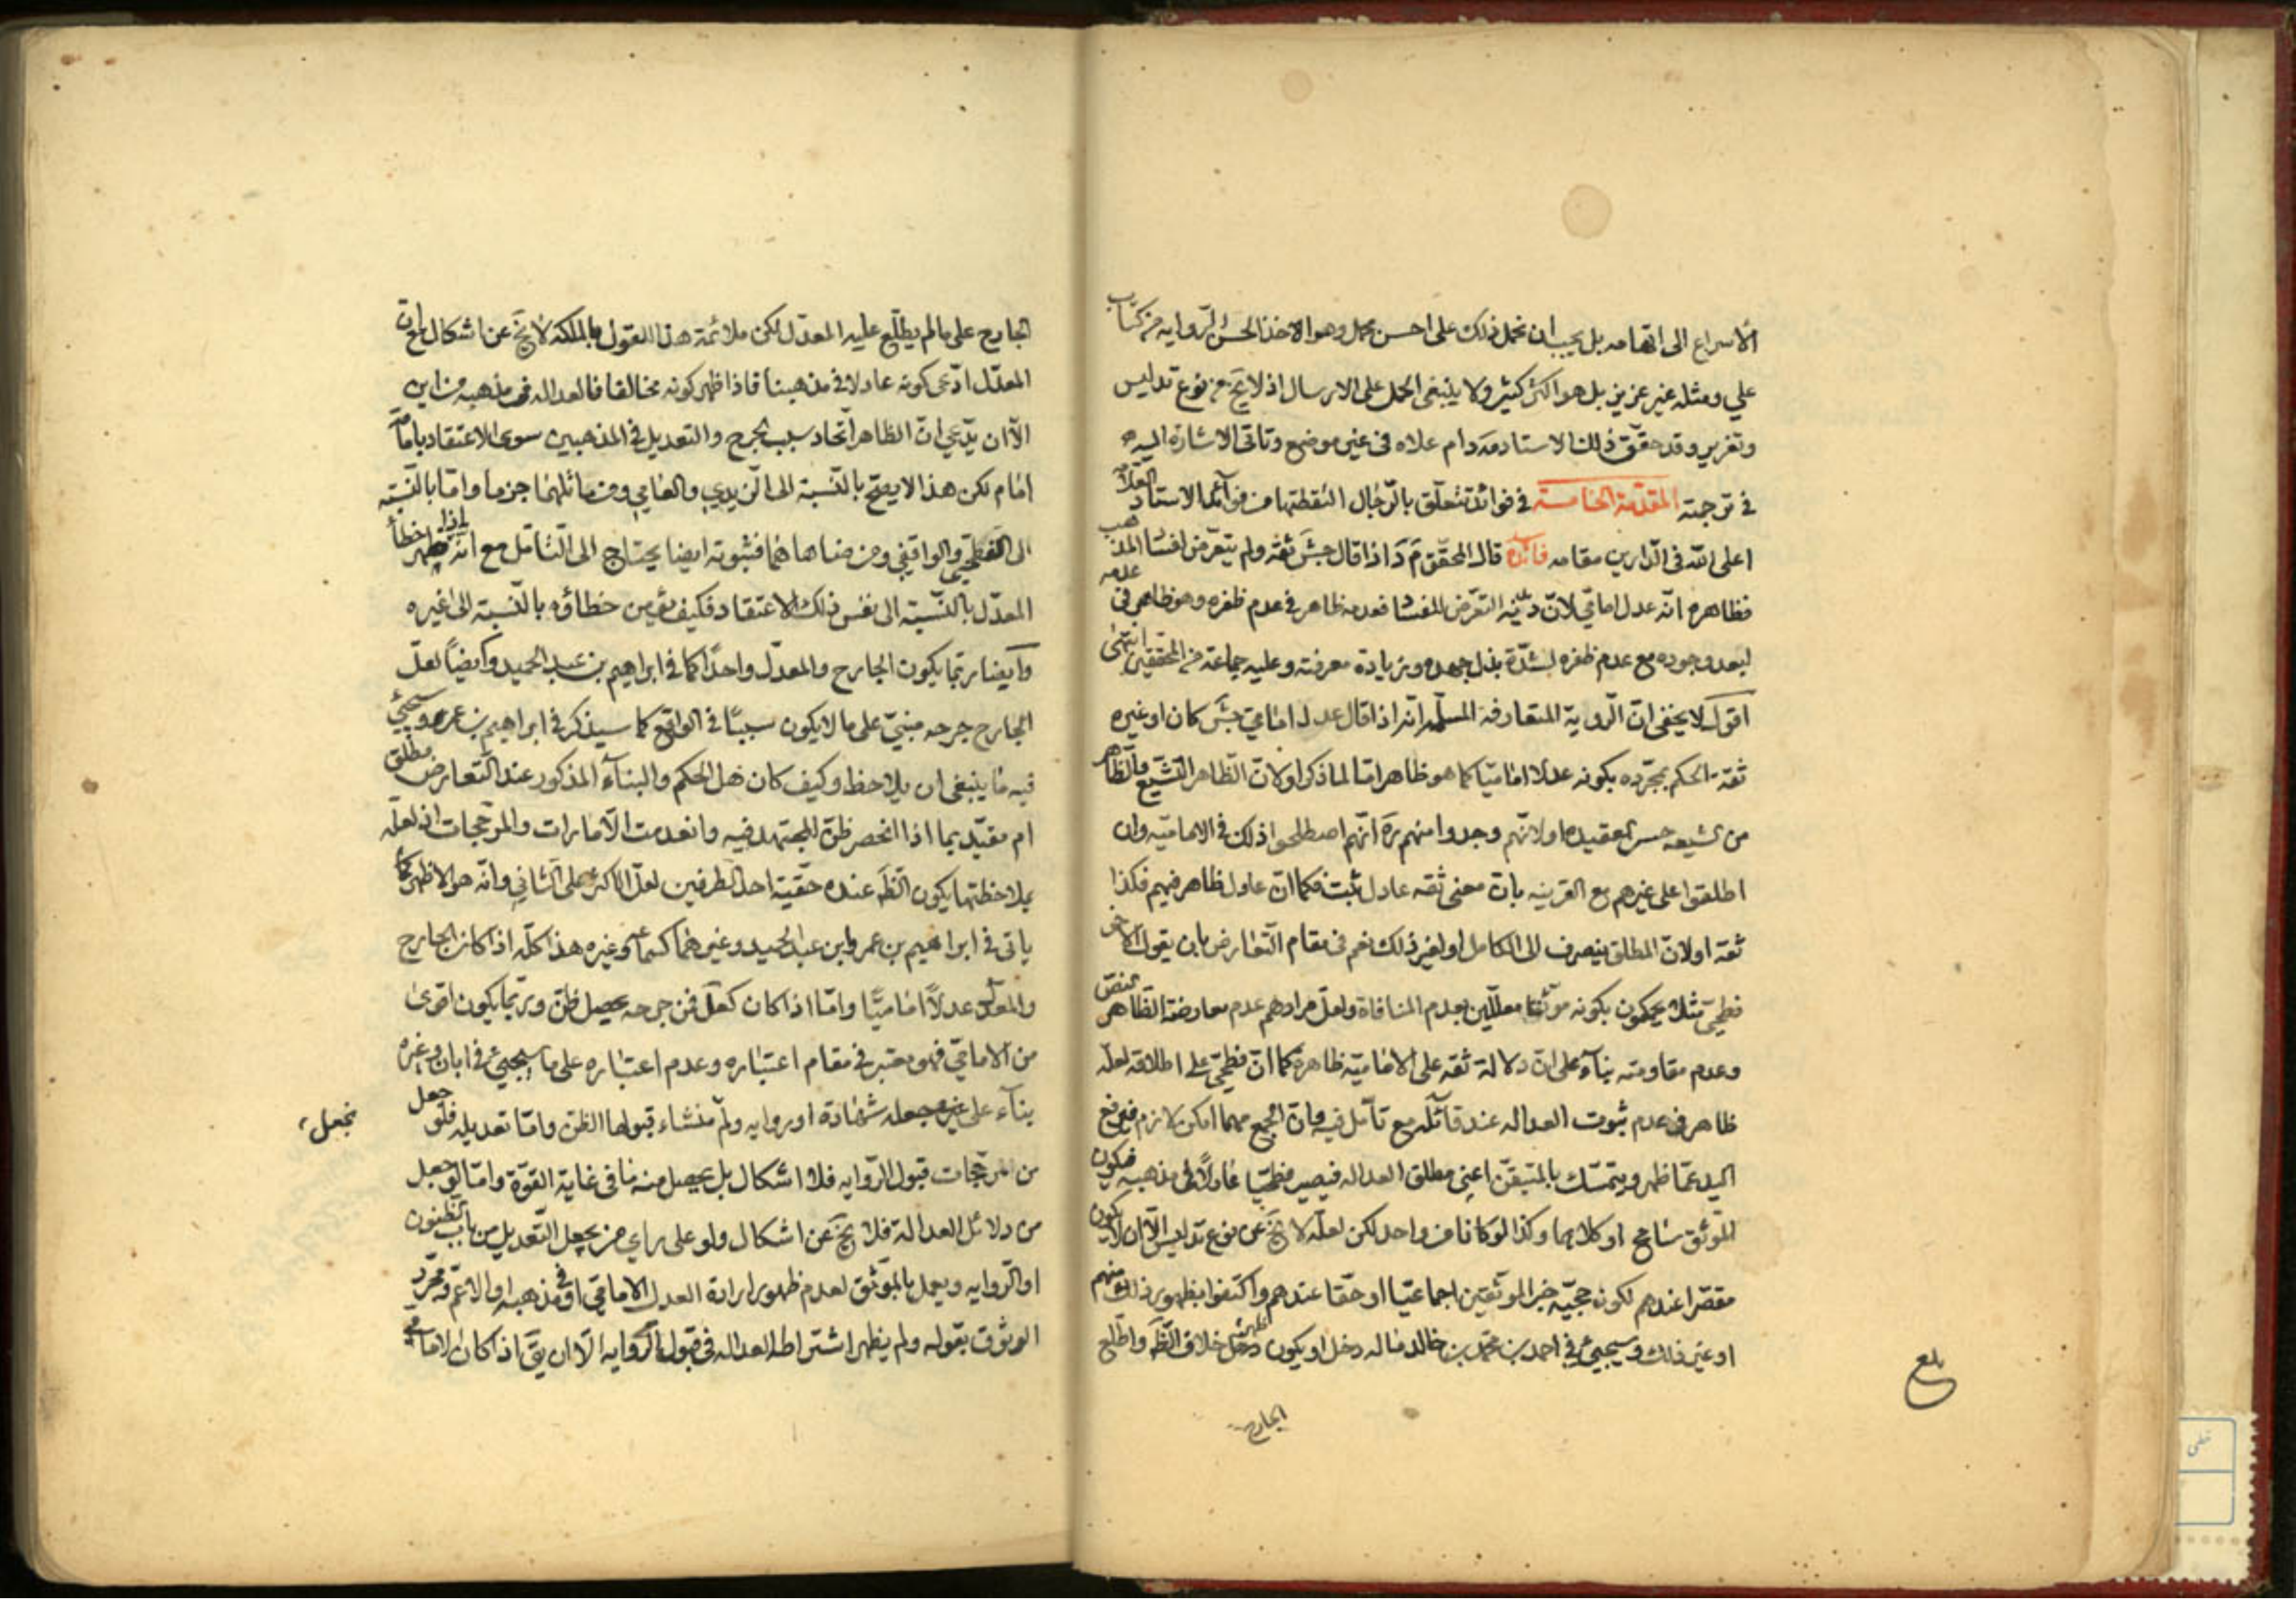 الاسراع الى اتهامه بل يجب ان نحمل ذلك على احسن محمل وهو الاخذ الحسن الروايه من كتاب
علي ومثله غير عزيز بل هو اكثر كثير ولا ينبغي الحمل على الارسال اذ لا يخ من نوع تدليس
وتغرير وقد حقق ذلك الاستاد مد دام علاه في غير موضع وتاتى الاشارة اليه
في ترجمته المقدّمة الخامسة في فوائد تتعلّق بالرّجال التقطتها من فوائد الاستاد العلّامه
اعلى الله في الدارين مقامه فائدة قال المحقق م د اذا قال جش ثقه ولم يتعرض لفساد المذهب
فظاهره انّه عدل امامي لانّ ديدنه التعرّض للفساد فعدمه ظاهر في عدم ظفره وهو ظاهر في عدمه
لبعد وجوده مع عدم ظفره لشدّة بذل جهده وزيادة معرفته وعليه جماعة من المحققين انتهى
اقول لا يخفى انّ الروية المتعارفة المسلّمه انّه اذا قال عدل امامي جش كان او غيره
ثقة الحكم بمجرّده بكونه عدلا اماميّا كما هو ظاهر امّا لما ذكر او لانّ الظاهر التشيّع والظاهر
من الشيعه حسن العقيده او لانّهم وجدوا منهم ره انّهم اصطلحوا ذلك في الاماميّه وان
اطلقوا على غيرهم مع القرينه بان معنى ثقه عادل ثبت فكما انّ عادل ظاهر فيهم فكذا
ثقة او لانّ المطلق ينصرف الى الكامل او لغير ذلك نعم في مقام التعارض بان يقول الاخر
فطحيّ مثلا يحكمون بكونه موثقا معلّلين بعدم المنافاة ولعل مرادهم عدم معارضة الظاهر النص
وعدم مقاومته بناء على انّ دلالة ثقه على الاماميّة ظاهرة كما انّ فطحيّ على اطلاقه لعلّه
ظاهر في عدم ثبوت العدالة عند قائله مع تأمّل فيه وانّ الجمع مهما امكن لازم فيرفع
اليد عمّا ظهر ويتمسّك بالمتيقّن اعني مطلق العدالة فيصير فطحيّا عادلا في مذهبه فيكون
الموثّق سامح او كلاهما وكذا لو كانا من واحد لكن لعلّه لا يخ عن نوع تدليس الا ان لا يكون
مقصّرا عندهم لكون حجيّة خبر الموثقين اجماعيّا او حقا عندهم واكتفوا بظهور ذلك منهم
او غير ذلك وسيجيئ في احمد بن محمّد بن خالد ماله دخل او يكون ظهر خلاف الظه واطّلع
الجارح
بلغ
الجارح على ما لم يطّلع عليه المعدّل لكن ملائمة هذا القول بالملكة لا يخ عن اشكال مع ان
المعدّل ادّعى كونه عادلا في مذهبنا فاذا ظهر كونه مخالفا فالعدالة في مذهبه من اين
الا ان يدّعي انّ الظاهر اتّحاد سبب الجرح والتعديل في المذهبين سوى الاعتقاد بامامة
امام لكن هذا لا يصحّ بالنّسبة الى الزيدي والعامي ومن ماثلهما جزما وامّا بالنّسبة
الى الفطحي والواقفي ومن ضاهاهما فثبوته ايضا يحتاج الى التّامّل مع انّه اذا ظهر خطأ
المعدّل بالنّسبة الى نفس ذلك الاعتقاد فكيف يؤمن خطاؤه بالنّسبة الى غيره
وايضا ربّما يكون الجارح والمعدّل واحدا كما في ابراهيم بن عبد الحميد وايضا لعلّ
الجارح جرحه مبنيّ على ما لا يكون سببا في الواقع كما سيذكر في ابراهيم بن عمر ويجيئ
فيه ما ينبغي ان يلاحظ وكيف كان فهل الحكم والبناء المذكور عند التعارض مطلق
ام مقيّد بما اذا انحصر ظنّ المجتهد فيه وانعدمت الامارات والمرجّحات اذ لعلّه
بملاحظتها يكون الظه عنده حقيّة احد الطرفين لعلّ الاكثر على الثاني وانّه هو الاظهر كما
ياتى في ابراهيم بن عمر وابن عبد الحميد وغيرهما كسماعه وغيره هذا كلّه اذا كان الجارح
والمعدّل عدلا اماميّا وامّا اذا كان كعلّ فمن جرحه يحصل ظنّ وربّما يكون اقوى
من الامامي فهو معتبر في مقام اعتباره وعدم اعتباره على ما سيجيئ في ابان وغيره
بناء على جعله شهادة او روايه ولم منشاء قبولها الظن وامّا تعديله فلو جعل
نجعل
من المرجّحات قبول الرّوايه فلا اشكال بل يحصل منه ما في غاية القوّة وامّا لو جعل
من دلائل العدالة فلا يخ عن اشكال ولو على راي من يجعل التّعديل من باب الظنون
او الروايه ويعمل بالموثّق لعدم ظهور ارادة العدل الامامي او في مذهبه او الاعمّ ومجرّد
الوثوق بقوله ولم يظهر اشتراطه العداله في قبول الروايه الّا ان يق اذ كان الامامي